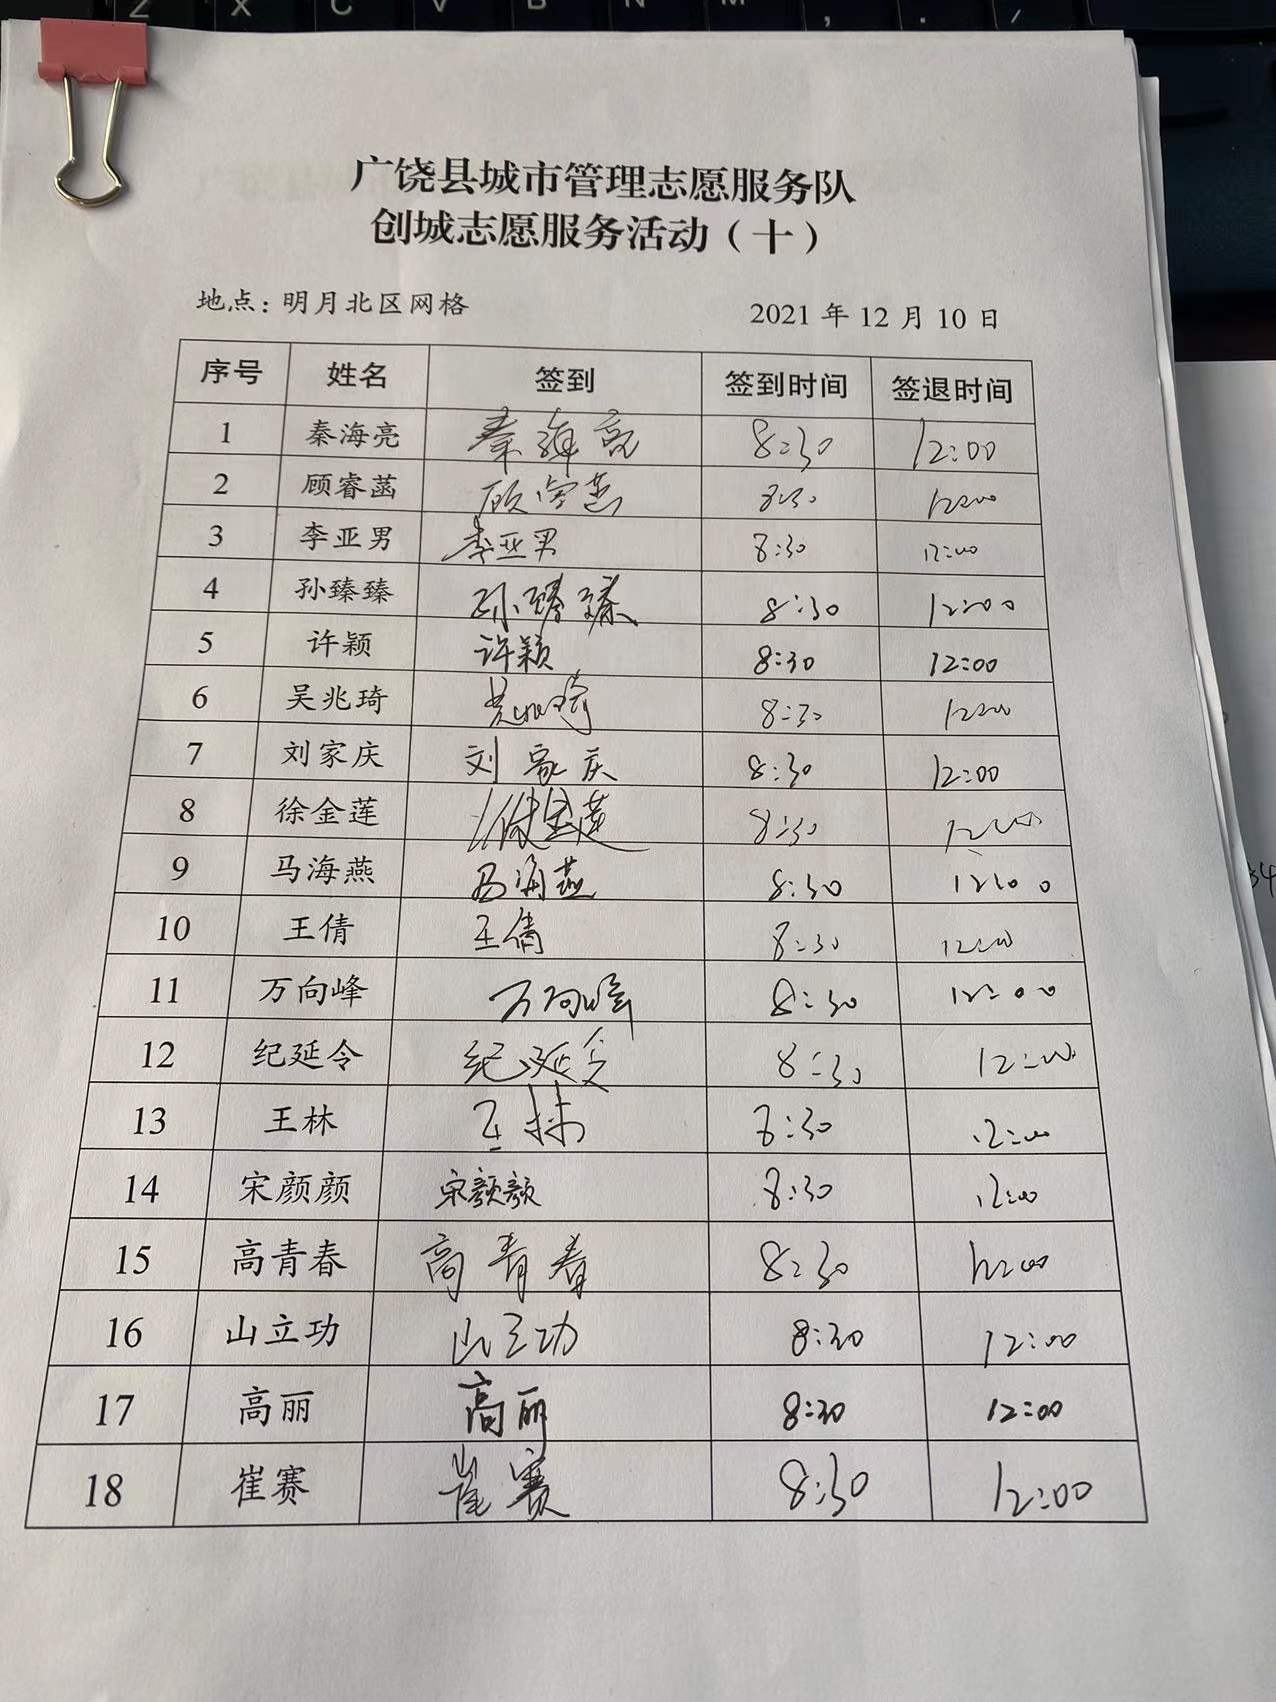 Z X C V B N M , . /
广饶县城市管理志愿服务队
创城志愿服务活动（十）
地点：明月北区网格 2021 年 12 月 10 日
序号 姓名 签到 签到时间 签退时间
1 秦海亮 秦海亮 8:30 12:00
2 顾睿菡 顾睿菡 8:30 12:00
3 李亚男 李亚男 8:30 12:00
4 孙臻臻 孙臻臻 8:30 12:00
5 许颖 许颖 8:30 12:00
6 吴兆琦 吴兆琦 8:30 12:00
7 刘家庆 刘家庆 8:30 12:00
8 徐金莲 徐金莲 8:30 12:00
9 马海燕 马海燕 8:30 12:00
10 王倩 王倩 8:30 12:00
11 万向峰 万向峰 8:30 12:00
12 纪延令 纪延令 8:30 12:00
13 王林 王林 8:30 12:00
14 宋颜颜 宋颜颜 8:30 12:00
15 高青春 高青春 8:30 12:00
16 山立功 山立功 8:30 12:00
17 高丽 高丽 8:30 12:00
18 崔赛 崔赛 8:30 12:00